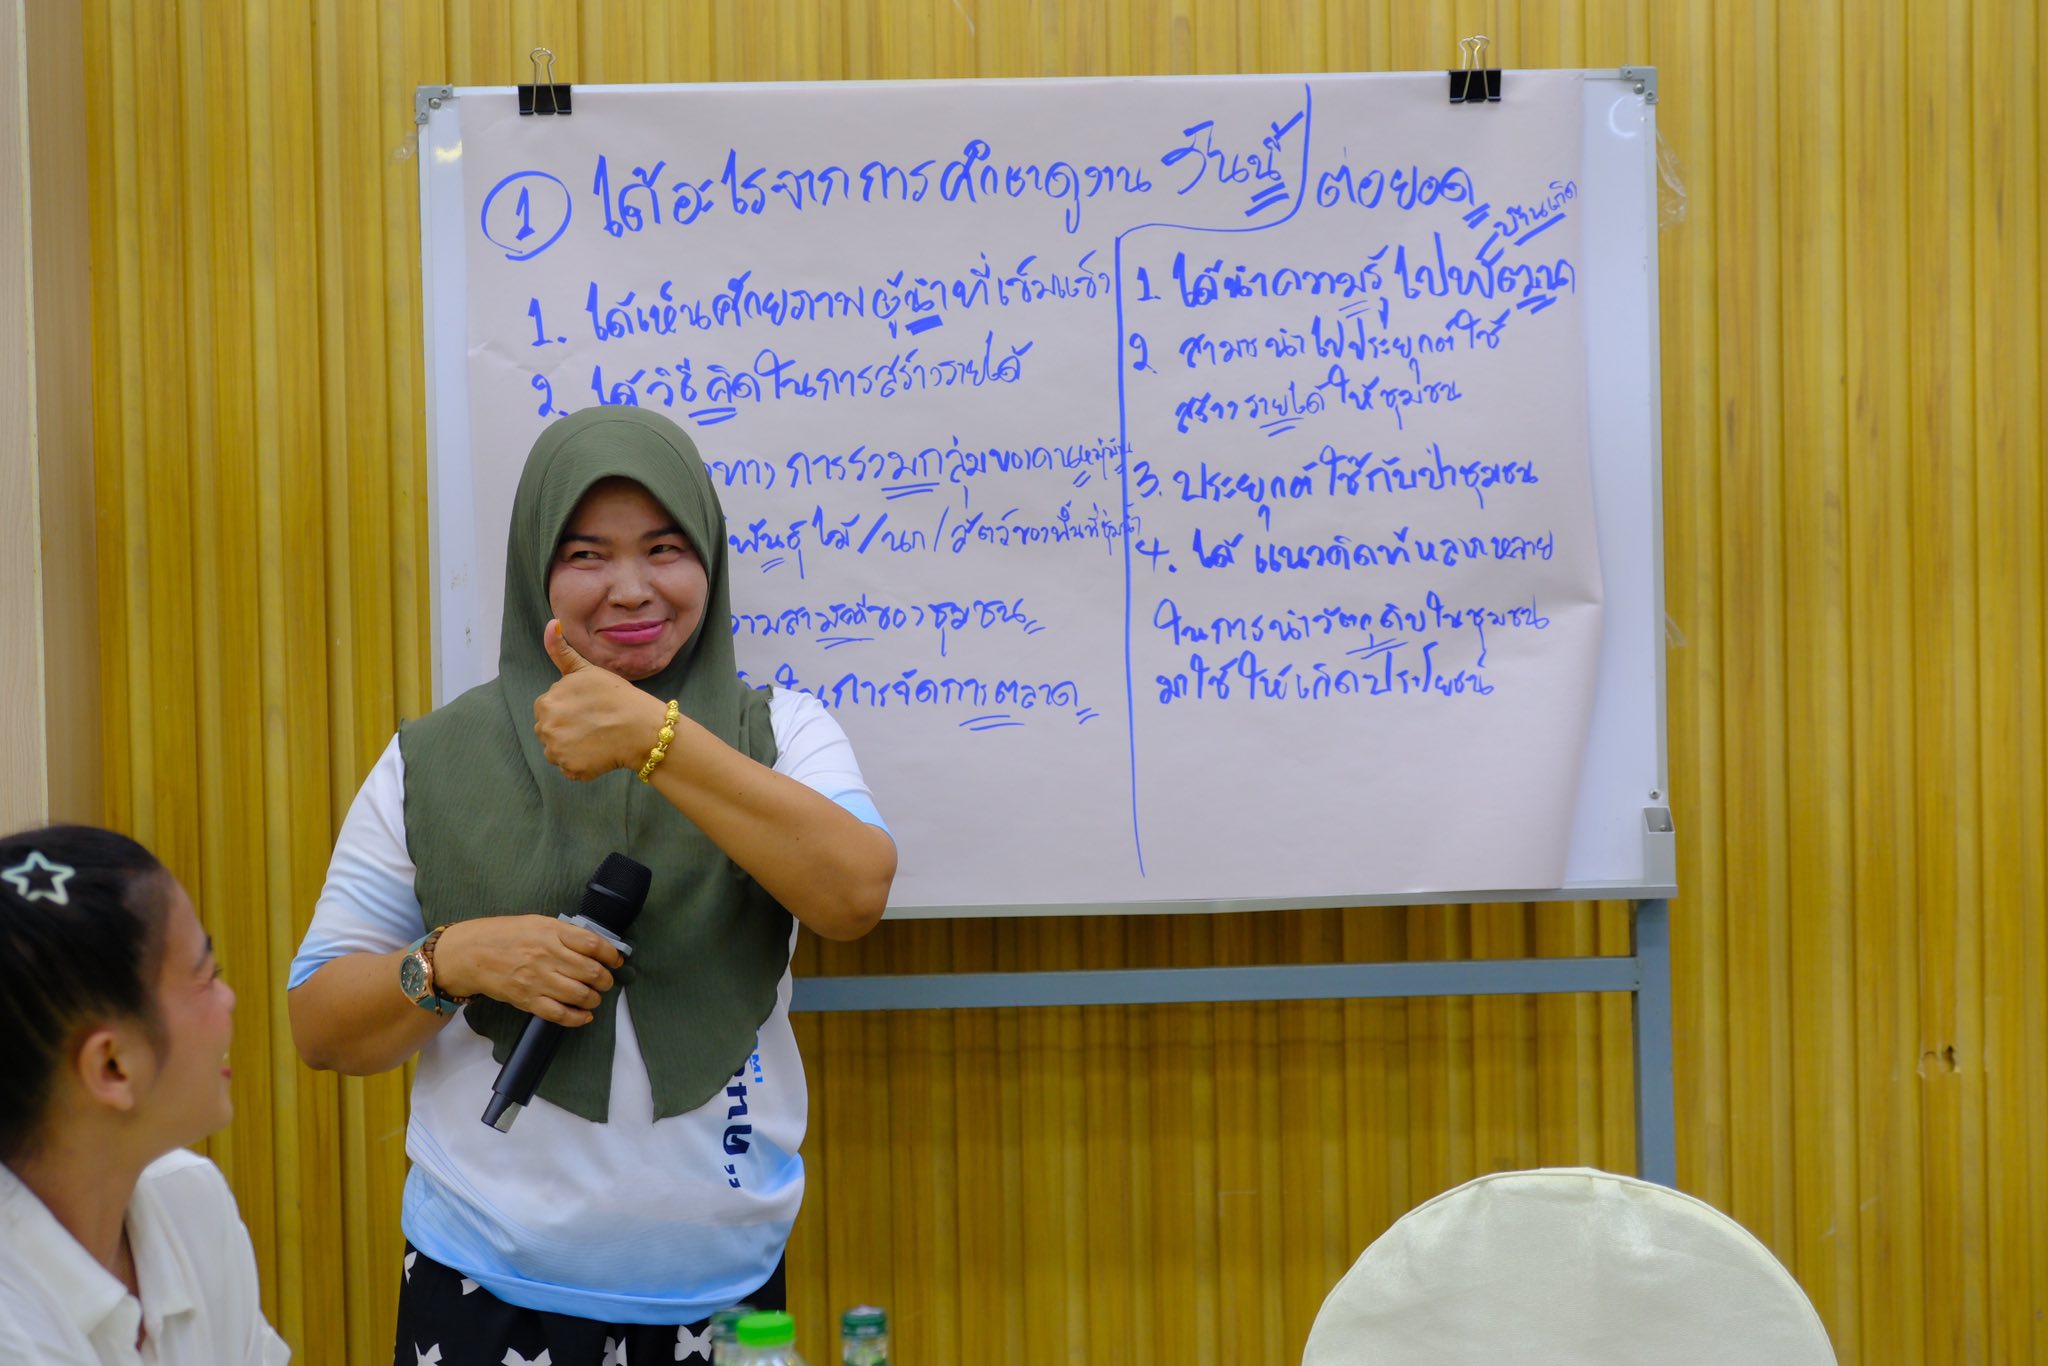 1 ได้อะไรจากการศึกษาดูงาน วันนี้
1. ได้เห็นศักยภาพผู้นำที่เข้มแข็ง
2. ได้วิธีคิดในการสร้างรายได้
ทาง การรวมกลุ่มของคนหมู่บ้าน
พันธุ์ไม้/นก/สัตว์ของพื้นที่ชุ่มน้ำ
วามสามัคคีของชุมชน
ในการจัดการตลาด
ต่อยอด
บ้านเกิด
1. ได้นำความรู้ไปพัฒนา
2. สามารถนำไปประยุกต์ใช้
สร้างรายได้ให้ชุมชน
3. ประยุกต์ใช้กับป่าชุมชน
4. ได้แนวคิดที่หลากหลาย
ในการนำวัตถุดิบในชุมชน
มาใช้ให้เกิดประโยชน์